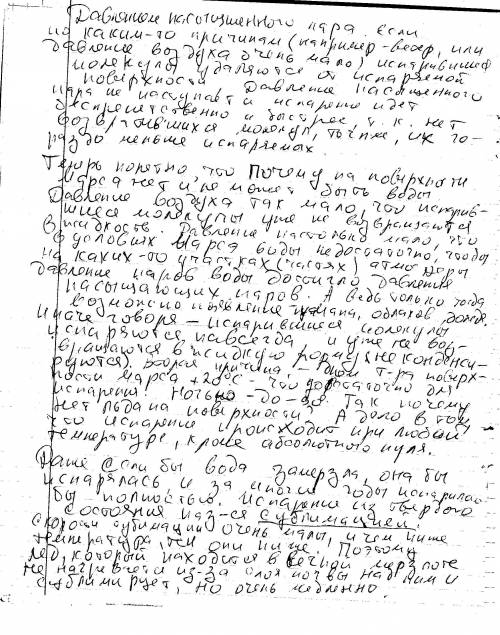 Давлением насыщенного пара. если
по каким-то причинам (например-ветер, или
давление воздуха очень мало) испарившиеся
молекулы удаляются от испаряемой
поверхности давление насыщенного
пара не наступает и испарение идет
беспрепятственно и быстрее, т.к. нет
возвратившихся молекул, точнее, их го-
раздо меньше испаряемых.
Теперь понятно, что Почему на поверхности
Марса нет и не может быть воды
Давление воздуха так мало, что испарив-
шиеся молекулы уже не возвращаются
в жидкость. Давление настолько мало, что
в условиях Марса воды недостаточно, чтобы
на каких-то участках (частях) атмосферы
давление паров воды достигло давления
насыщающих паров. А ведь только тогда
возможно появление тумана, облаков, дождя.
Иначе говоря - испарившиеся молекулы
испаряются навсегда и уже не воз-
вращаются в жидкую форму (не конденси-
руются). Вторая причина - днем т-ра поверх-
ности Марса +20°С - что достаточно для
испарения. Ночью -до -90. Так почему
нет льда на поверхности? А дело в том,
что испарение происходит при любой
температуре, кроме абсолютного нуля.
Даже если бы вода замерзла, она бы
испарялась и за многие годы испарилась
бы полностью. Испарение из твердого
состояния наз-ся сублимацией.
скорости сублимации очень малы, и чем ниже
температура, тем они ниже. Поэтому
лед, который находится в вечной мерзлоте
не нагревается из-за слоя почвы над ним и
сублимирует, но очень медленно.